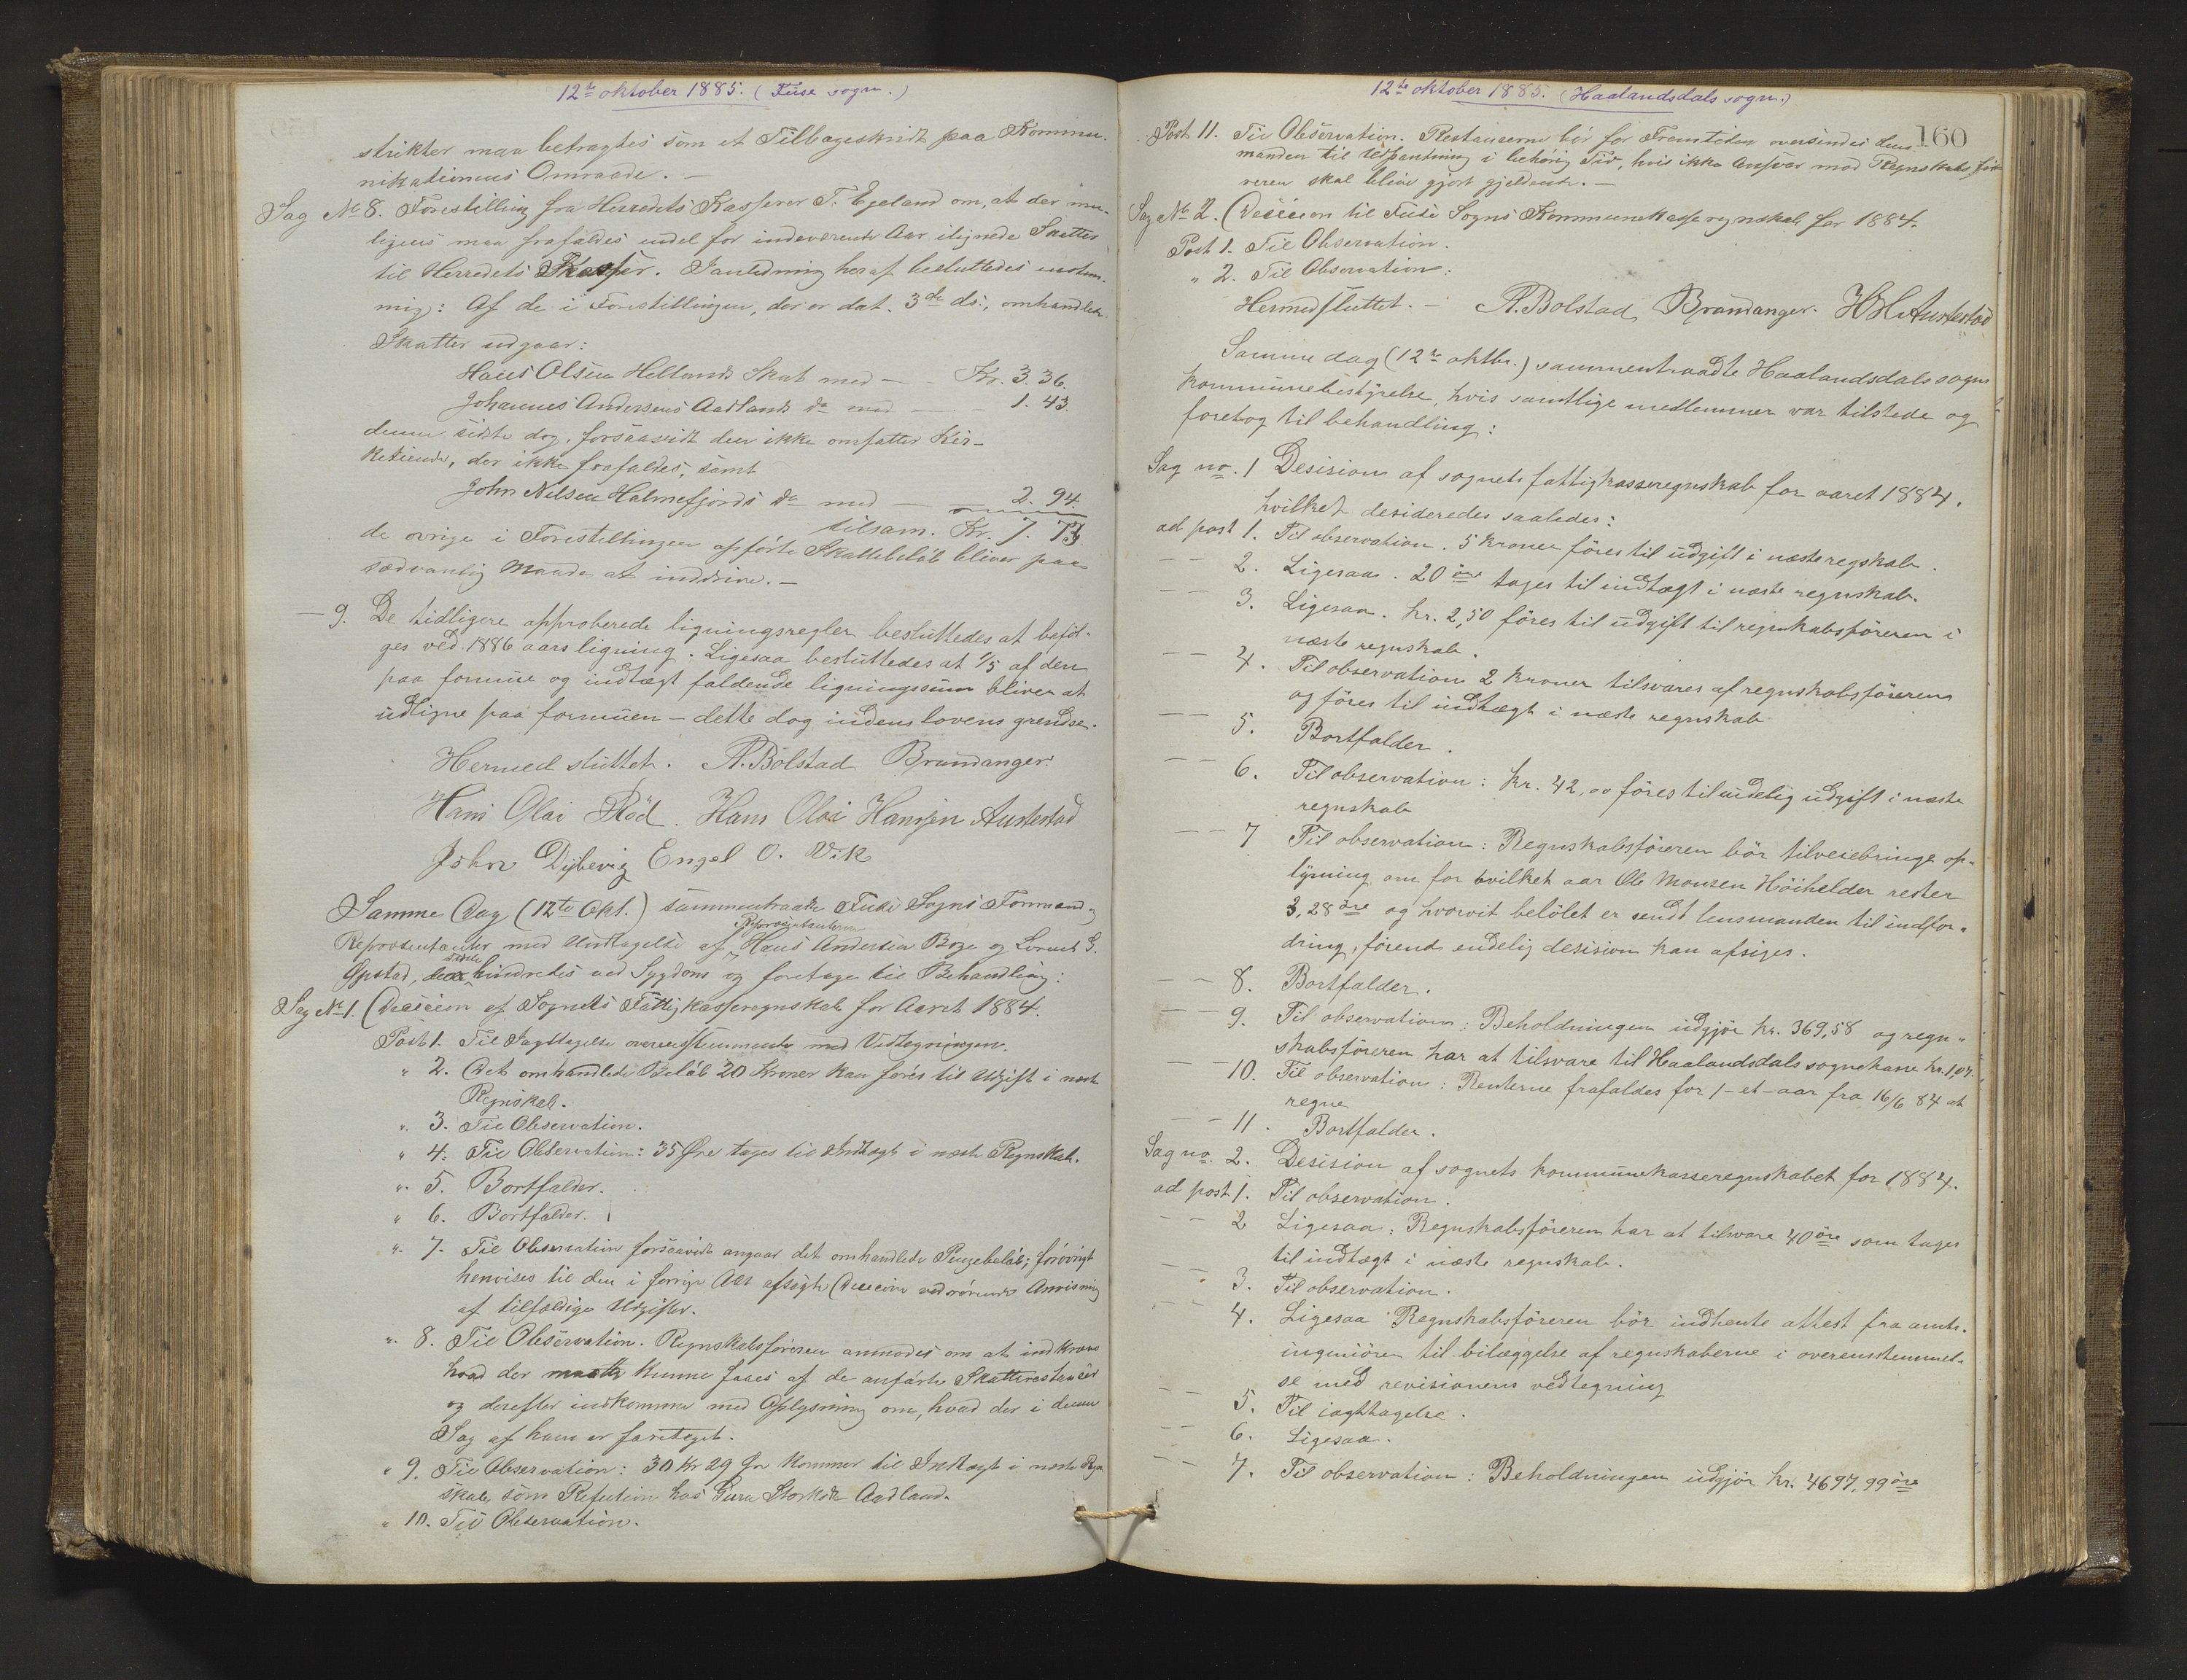 12te oktober 1885. (Fuse sogn.)
strikter maa betragtes som et Tilbageskridt paa Kommu-
nikationens Omraade. -
Sag No 8. Forestilling fra Herredets Kasserer T. Egeland om, at der mu-
ligens maa frafaldes endel for indeværende Aar ilignede Skatter
til Herredets Kasser. I anledning heraf besluttedes enstem-
mig: Af de i Forestillingen, der er dat. 3de ds., omhandlede
Skatter udgaar:
Hans Olsen Hellands Skat med - Kr. 3.36.
Johannes Andersens Aadlands do med - - 1.43.
denne sidste dog, forsaavidt den ikke omfatter Kir-
ketiende, der ikke frafaldes, samt
John Nilsen Holmefjords do med - 2.94.
tilsam. Kr. 7.73
de øvrige i Forestillingen opførte Skattebeløb bliver paa
sædvanlig Maade at inddrive. -
- 9. De tidligere approberede ligningsregler besluttedes at beføl-
ges ved 1886 aars ligning. Ligesaa besluttedes at 1/5 af den
paa formue og indtægt faldende ligningssum bliver at
udligne paa formuen - dette dog indens lovens grendse.
Hermed sluttet. A. Bolstad Brandanger.
Hans Olai Röd. Hans Olai Hansen Austestad
John Dybevig Engel O. Vik
Samme Dag (12te Okt.) sammentraadte Fuse Sogns Formænd og
Repræsentanterne
Repræsentanter med Undtagelse af Hans Andersen Boge og G.
sidste
Opstad, hindredes ved Sygdom og foretoges til Behandling:
Sag No 1. Decision af Sognets Fattigkasseregnskab for Aaret 1884.
Post 1. Til Iagttagelse overensstemmende med Vedtegningen.
" 2. Det omhandlede Beløb 20 Kroner kan føres til Udgift i næste
Regnskab.
" 3. Til Observation.
" 4. Til Observation: 35 Øre tages til Indtægt i næste Regnskab.
" 5. Bortfalder.
" 6. Bortfalder.
" 7. Til Observation forsaavidt angaar det omhandlede Pengebeløb; forøvrigt
henvises til den i forrige Aar afsagte Decision vedrørende Anvisning
af tilfældige Udgifter.
" 8. Til Observation. Regnskabsføreren anmodes om at indkræve
hvad der kunne faaes af de anførte Skatterestancer
og derefter indkomme med Oplysning om, hvad der i denne
Sag af ham er foretaget.
" 9. Til Observation: 30 Kr 29 Øre kommer til Indtægt i næste Regn-
skab som Refusion hos Guru Storkdt. Aadland.
" 10. Til Observation.
12te oktober 1885. (Haalandsdals sogn.)
160
Post 11. Til Observation. Restancerne bør for Fremtiden oversendes Lens-
manden til Udpantning i behørig Tid, hvis ikke Ansvar mod Regnskabsfø-
reren skal blive gjort gjeldende. -
Sag No 2. Decision til Fuse Sogns Kommunekasseregnskab for 1884.
Post 1. Til Observation.
" 2. Til Observation.
Hermed sluttet. - A. Bolstad Brandanger. H H Austestad
Samme dag (12te oktbr.) sammentraadte Haalandsdals sogns
kommunebestyrelse, hvis samtlige medlemmer var tilstede og
foretog til behandling:
Sag no. 1 Desision af sognets fattigkasseregnskab for aaret 1884.
hvilket desideredes saaledes:
ad post 1. Til observation. 5 kroner føres til udgift i næste regskab.
- - 2. Ligesaa. 20 øre tages til indtægt i næste regnskab.
- - 3. Ligesaa. kr. 2,50 føres til udgift til regnskabsføreren i
næste regnskab.
- - 4. Til observation 2 kroner tilsvares af regnskabsføreren
og føres til indtægt i næste regnskab
- - 5. Bortfalder.
- - 6. Til observation: kr. 42,00 føres til endelig udgift i næste
regnskab
- - 7 Til observation: Regnskabsføreren bör tilveiebringe op-
lysning om for hvilket aar Ole Monsen Höihelder rester
3,28 øre og hvorvit belöbet er sendt lensmanden til indfor-
dring, førend endelig desision kan afsiges.
- - 8. Bortfalder.
- - 9. Til observation: Beholdningen udgjör kr. 369,58 og regn-
skabsføreren har at tilsvare til Haalandsdals sognekasse kr. 1,07.
- - 10. Til observation: Renterne frafaldes for 1 - et - aar fra 16/6 84 at
regne
- - 11. Bortfalder.
Sag no. 2. Desision af sognets kommunekasseregnskabet for 1884.
ad post 1. Til observation.
- - 2 Ligesaa: Regnskabsføreren har at tilsvare 40 øre som tages
til indtægt i næste regnskab.
- - 3. Til observation.
- - 4. Ligesaa Regnskabsføreren bör indhente attest fra amts-
ingeniören til bilæggelse af regnskaberne i overensstemmel-
se med revisionens vedtegning
- - 5. Til iagttagelse.
- - 6. Ligesaa.
- - 7. Til observation: Beholdningen udgjör kr. 4697,99 öre